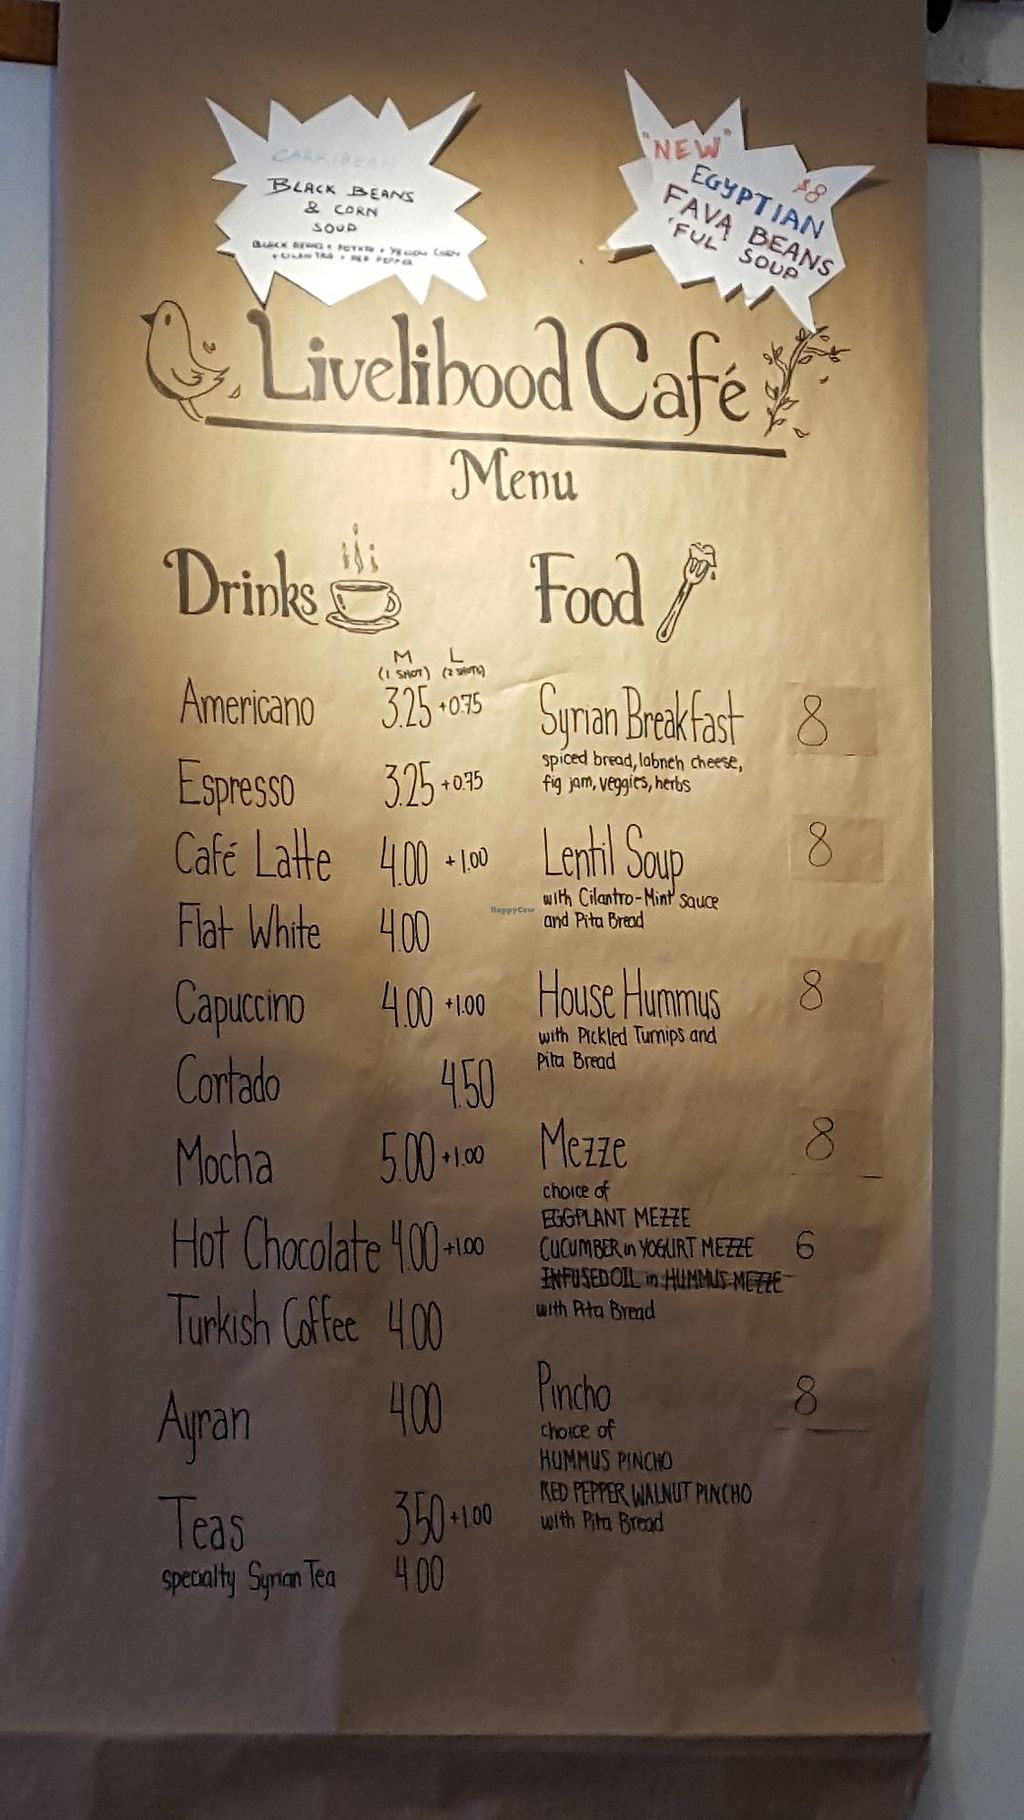 CARRIBEAN
BLACK BEANS
& CORN
SOUP
BLACK BEANS + POTATO + YELLOW CORN
+ CILANTRO + RED PEPPER
"NEW"
$8
EGYPTIAN
FAVA BEANS
'FUL SOUP
Livelihood Café
Menu
Drinks
M L
(1 SHOT) (2 SHOTS)
Americano 3.25 +0.75
Espresso 3.25 +0.75
Café Latte 4.00 +1.00
Flat White 4.00
Capuccino 4.00 +1.00
Cortado 4.50
Mocha 5.00 +1.00
Hot Chocolate 4.00 +1.00
Turkish Coffee 4.00
Ayran 4.00
Teas 3.50 +1.00
specialty Syrian Tea 4.00
Food
Syrian Breakfast 8
spiced bread, labneh cheese,
fig jam, veggies, herbs
Lentil Soup 8
with Cilantro-Mint sauce
and Pita Bread
HappyCow
House Hummus 8
with Pickled Turnips and
Pita Bread
Mezze 8
choice of
EGGPLANT MEZZE
CUCUMBER in YOGURT MEZZE 6
INFUSED OIL in HUMMUS MEZZE
with Pita Bread
Pincho 8
choice of
HUMMUS PINCHO
RED PEPPER WALNUT PINCHO
with Pita Bread